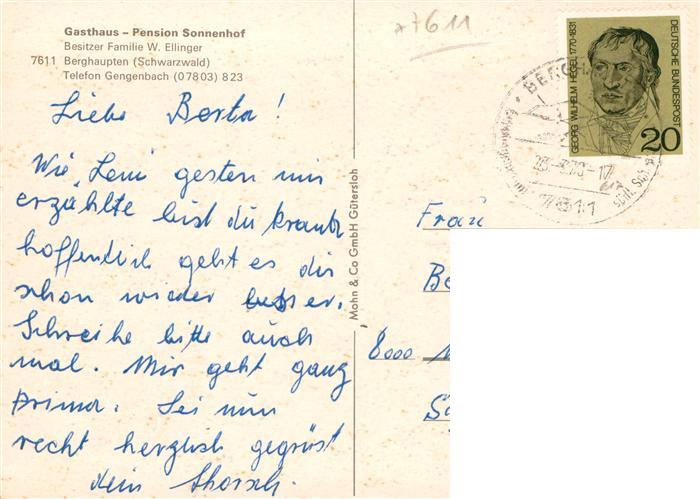 Gasthaus – Pension Sonnenhof
Besitzer Familie W. Ellinger
7611 Berghaupten (Schwarzwald)
Telefon Gengenbach (07803) 823
7611
GEORG WILHELM HEGEL 1770-1831
DEUTSCHE BUNDESPOST
20
Liebe Berta!
Wie Leni gestern mir
erzählte bist du krank
hoffentlich geht es dir
schon wieder besser.
Schreibe bitte auch
mal. Mir geht ganz
prima. Sei nun
recht herzlich gegrüst
dein
Mohn & Co GmbH Gütersloh
Frau
Be
8000